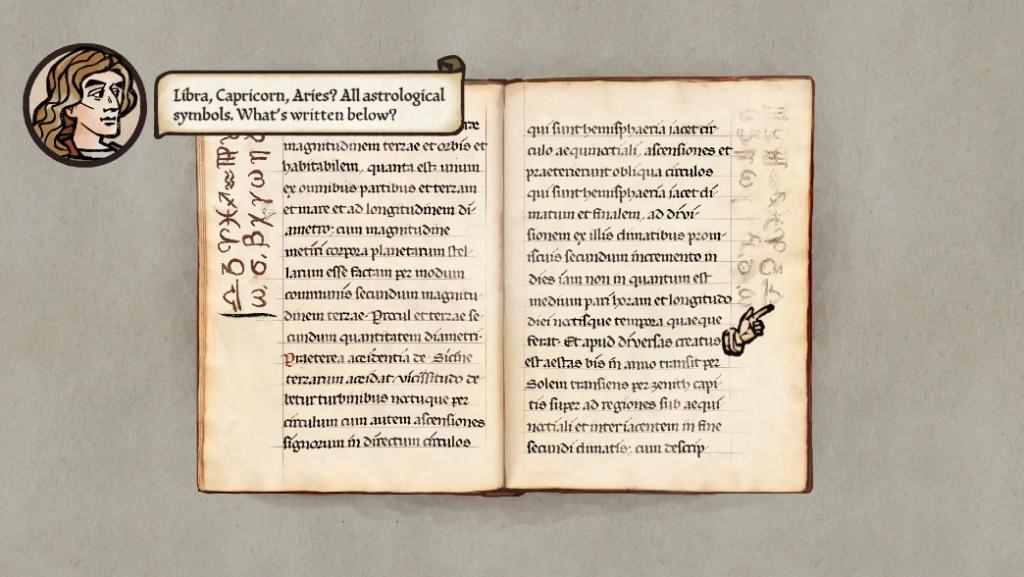 Libra, Capricorn, Aries? All astrological
symbols. What's written below?
magnitudinem terrae et orbis et
habitabilem, quanta est unum
ex omnibus partibus et terram
et mare et ad longitudinem di-
ametro; cum magnitudine
metiri corpora planetarum stel-
larum esse factam per modum
communis secundum magnitu-
dinem terrae. Procul et terrae se-
cundum quantitatem diametri.
Praeterea accidentia de
terrarum accidat vicissitudo de-
betur turbinibus noctuque per
circulum cum autem ascensiones
signorum in directum circulos
qui sunt hemisphaeria iacet cir
culo aequinoctiali, ascensiones et
praeterierunt obliqua circulos
qui sunt hemisphaeria iacet cli-
matum et finalem, ad divi-
sionem ex illis climatibus prom-
iscuis secundum incremento in
dies iam non in quantum est
medium pari horam et longitudo
diei noctisque tempora quaeque
ferat. Et apud diversas creatus
est aestas bis in anno transit per
Solem transiens per zenith capi-
tis super ad regiones sub aequi
noctiali et inter iacentem in fine
secundi climatis; cum descrip